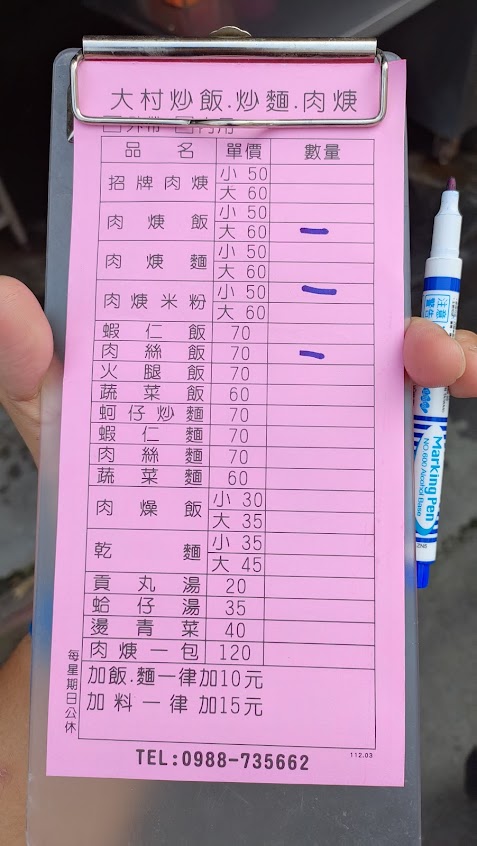 大村炒飯.炒麵.肉焿
外帶 內用
品名 單價 數量
招牌肉焿 小 50
大 60
肉焿飯 小 50
大 60 一
肉焿麵 小 50
大 60
肉焿米粉 小 50 一
大 60
蝦仁飯 70
肉絲飯 70 一
火腿飯 70
蔬菜飯 60
蚵仔炒麵 70
蝦仁麵 70
肉絲麵 70
蔬菜麵 60
肉燥飯 小 30
大 35
乾麵 小 35
大 45
貢丸湯 20
蛤仔湯 35
燙青菜 40
肉焿一包 120
加飯.麵一律加10元
加料一律加15元
每星期日公休
112.03
TEL:0988-735662
注意
警告
Marking Pen
NO.600 Alcohol Base